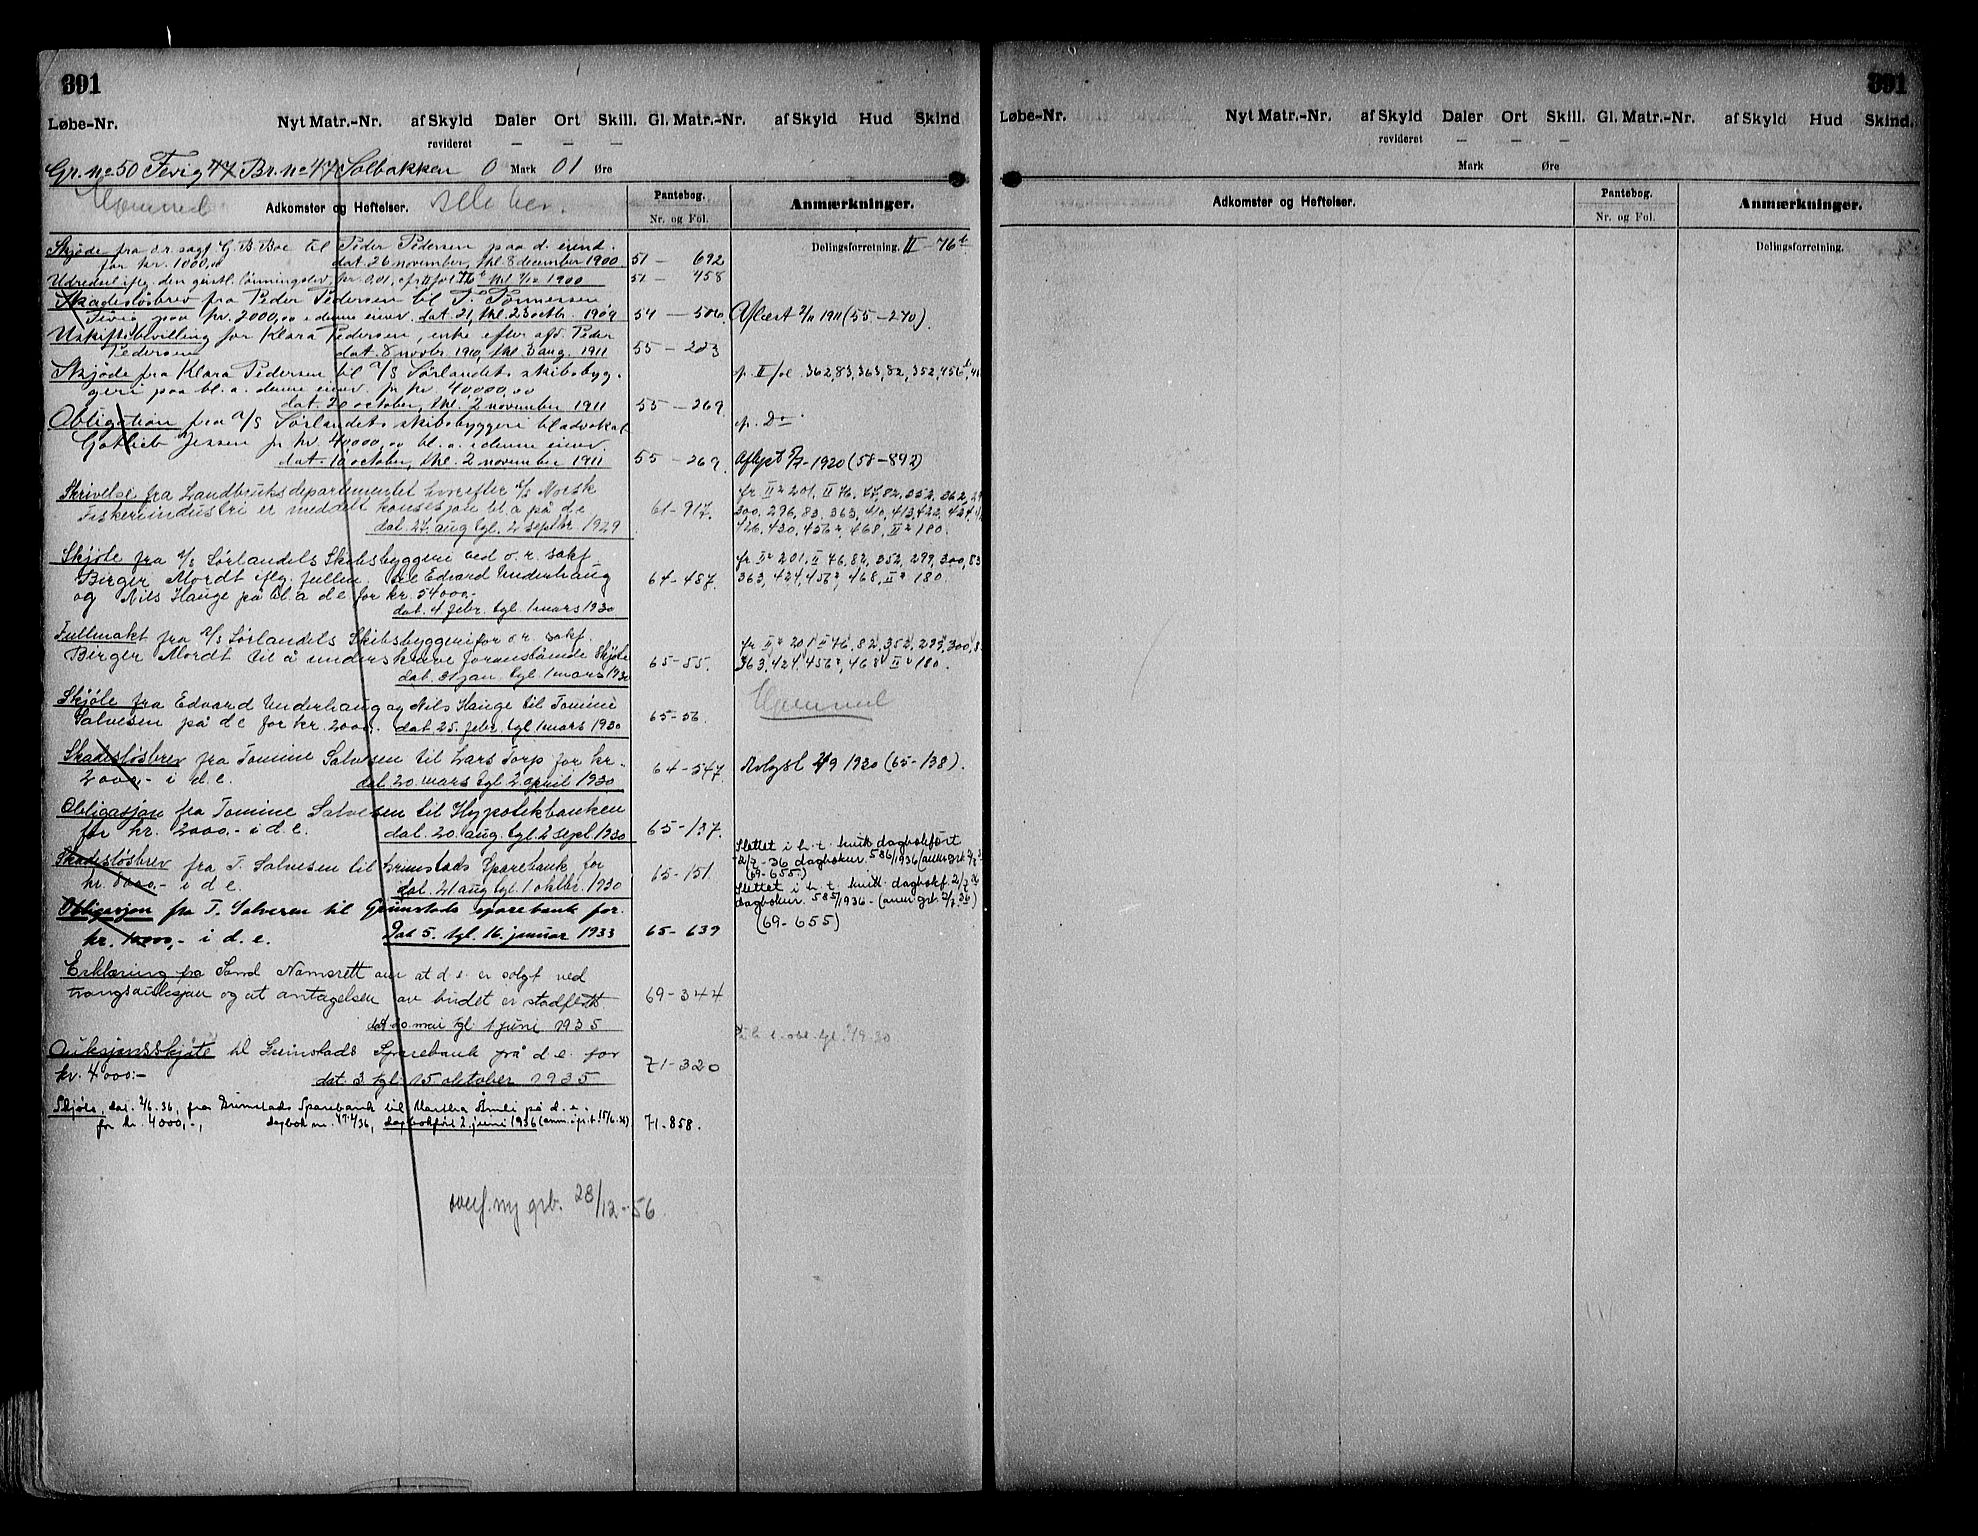 391
Nyt Matr.-Nr. af Skyld Daler Ort Skill. Gl. Matr.-Nr. af Skyld Hud Skind
Løbe-Nr.
revideret — — —
Gr. No 50 Fevig 47 Br. No 47 Solbakken 0 Mark 01 Øre
Adkomster og Heftelser.
Pantebog.
Nr. og Fol.
Anmærkninger.
Delingsforretning. II - 76b
Skjøde fra o.r. sagf. G. B. Boe til Peder Pedersen paa d. eiend.
for kr. 1000,00 dat. 26 november, thl. 8 december 1900. 51 — 692
1900 51 — 458
Skadesløsbrev fra Peder Pedersen til T. Tønnessen,
Fevig paa kr. 2000,00 i denne eiend. dat. 21, thl. 23 octb. 1909 54 — 506. Aflæst 1911 (55—270).
Uskiftebevilling for Klara Pedersen, enke efter afd. Peder
Pedersen dat. 8 novbr 1910, thl. 3 aug. 1911 55 — 203
Skjøde fra Klara Pedersen til A/S Sørlandets skibsbyg-
geri paa bl. a. denne eiend. for kr. 40,000,00
dat. 20 october, thl. 2 november 1911 55 — 269.
p. II fol. 362, 83, 363, 82, 352, 456b,
Obligation fra A/S Sørlandets skibsbyggeri til advokat
Gotlieb Jessen for kr. 40000,00 bl. a. i denne eiend.
dat. 10 october, thl. 2 november 1911 55 — 269.
p. Do
Aflyst 1920 (58—892)
Skrivelse fra Landbruksdepartementet hvorefter A/S Norsk
Fiskeriindustri er meddelt konsesjon bl. a på d e
dat. 27. aug tgl. 2 septbr. 1929 61-917.
fr IIa 201, II 76, 77, 82, 352, 362,
300, 296, 83, 363, 410, 413, 423, 424,
426, 430, 456a, 468, IIa 180.
Skjøte fra A/S Sørlandets Skibsbyggeri ved o. r. sakf
Birger Mordt iflg. fullm. til Edvard Underhaug
og Nils Hauge på bl. a d e for kr. 54000.-
dat. 4 febr. tgl. 1 mars 1930 64-487.
fr IIa 201, II 76, 82, 352, 299, 300, 83
363, 424, 456a, 468, IIa 180.
Fullmakt fra A/S Sørlandets Skibsbyggeri for o r. sakf.
Birger Mordt til å underskrive foranstående Skjøte
dat. 31 jan. tgl. 1 mars 1930 65-55.
fr IIa 201 II 76, 82, 352, 299, 300, 8
363, 424, 456a, 468 IIa 180.
Skjøte fra Edvard Underhaug og Nils Hauge til Tomine
Salvesen på d e for kr. 2000.-. dat. 25. febr. tgl 1 mars 1930 65-56.
Skadesløsbrev fra Tomine Salvesen til Lars Torp for kr.
2000.- i d. e. dat. 20. mars tgl. 2. april 1930 64-547. Avlyst 1930 (65-138).
Obligasjon fra Tomine Salvesen til Hypotekbanken
for kr. 2000.- i d. e. dat. 20. aug. tgl. 2 sept. 1930 65-137.
Slettet i h. t. kvitt. dagbokført
2/7 - 36 dagboknr. 586/1936 (anm. grb.
(69-655.)
Skadesløsbrev fra T. Salvesen til Grimstads Sparebank for
kr. 8000.- i d e. dat. 21 aug tgl. 1 oktbr. 1930 65-151.
Slettet i h. t. kvitt. dagbokf. 2/7 36
dagboknr. 585/1936 - (anm. grb.
(69-655)
Obligasjon fra T. Salvesen til Grimstads sparebank for.
kr. 1000,- i d. e. dat 5. tgl. 16. januar 1933 65-639
Erklæring fra Sand Namsrett om at d e. er solgt ved
tvangsauksjon og at antagelsen av budet er stadfestet
dat 20 mai tgl. 1 juni 1935 69-344
Auksjonsskjøte til Grimstads Sparebank på d e. for
kr. 4000.- dat. 3. tgl. 15 oktober 1935 71-320
Skjøte, dat. 2/6. 36, fra Grimstads Sparebank til Martha Åmli på d. e.
for kr. 4000,-, dagbok nr. 474/36, dagbokført 2 juni 1936 71-858.
overf. ny grb. 28/12-56.
391
Løbe-Nr. Nyt Matr.-Nr. af Skyld Daler Ort Skill. Gl. Matr.-Nr. af Skyld Hud Skind.
revideret — — —
Mark Øre
Adkomster og Heftelser.
Pantebog.
Nr. og Fol.
Anmærkninger.
Delingsforretning.